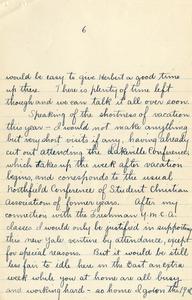 6
would be easy to give Herbert a good time
up there. There is plenty of time left
though and we can talk it all over soon.
Speaking of the shortness of vacation
this year - I would not make anything
but very short visits if any, having already
cut out attending the Lakeville Conference,
which takes up the week after vacation
begins, and corresponds to the usual
Northfield Conference of Student Christian
Association of former years. After my
connection with the Freshman Y.M.C.A.
classes I would only be justified in supporting
the new Yale century by attendance, except
for special reasons. But it would be still
less fair to idle here in the East an extra
week while you at home are all busy
and working hard - as home I go on the 19th